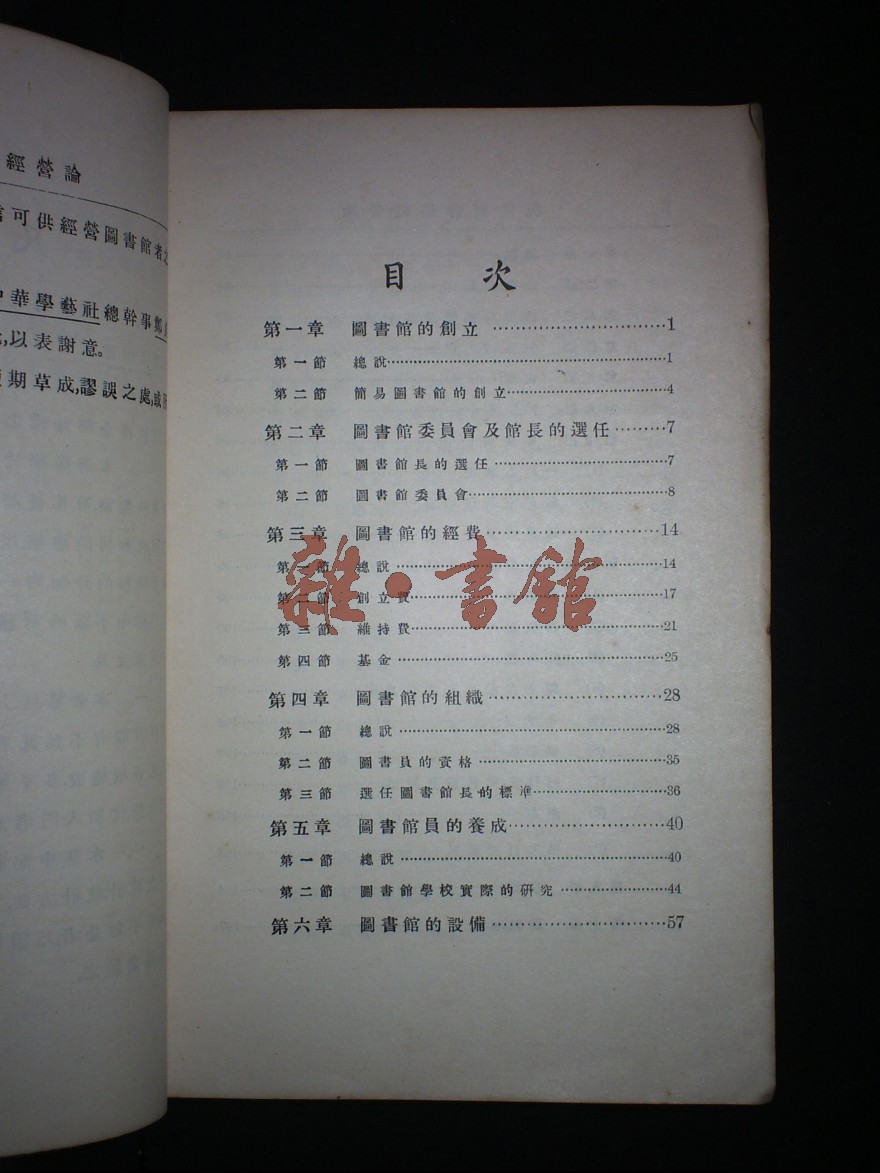 經營論
可供經營圖書館者
中華學藝社總幹事鄭
以表謝意。
期草成,謬誤之處,或
目次
第一章 圖書館的創立 1
第一節 總說 1
第二節 簡易圖書館的創立 4
第二章 圖書館委員會及館長的選任 7
第一節 圖書館長的選任 7
第二節 圖書館委員會 8
第三章 圖書館的經費 14
第一節 總說 14
第二節 創立費 17
第三節 維持費 21
第四節 基金 25
第四章 圖書館的組織 28
第一節 總說 28
第二節 圖書員的資格 35
第三節 選任圖書館長的標準 36
第五章 圖書館員的養成 40
第一節 總說 40
第二節 圖書館學校實際的研究 44
第六章 圖書館的設備 57
雜·書館